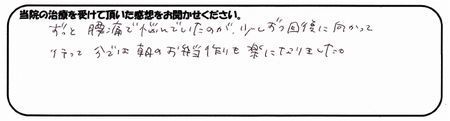 当院の治療を受けて頂いた感想をお聞かせください。
ずっと腰痛で悩んでいたのが、少しずつ回復に向かって
行って今では朝のお弁当作りも楽になりました。